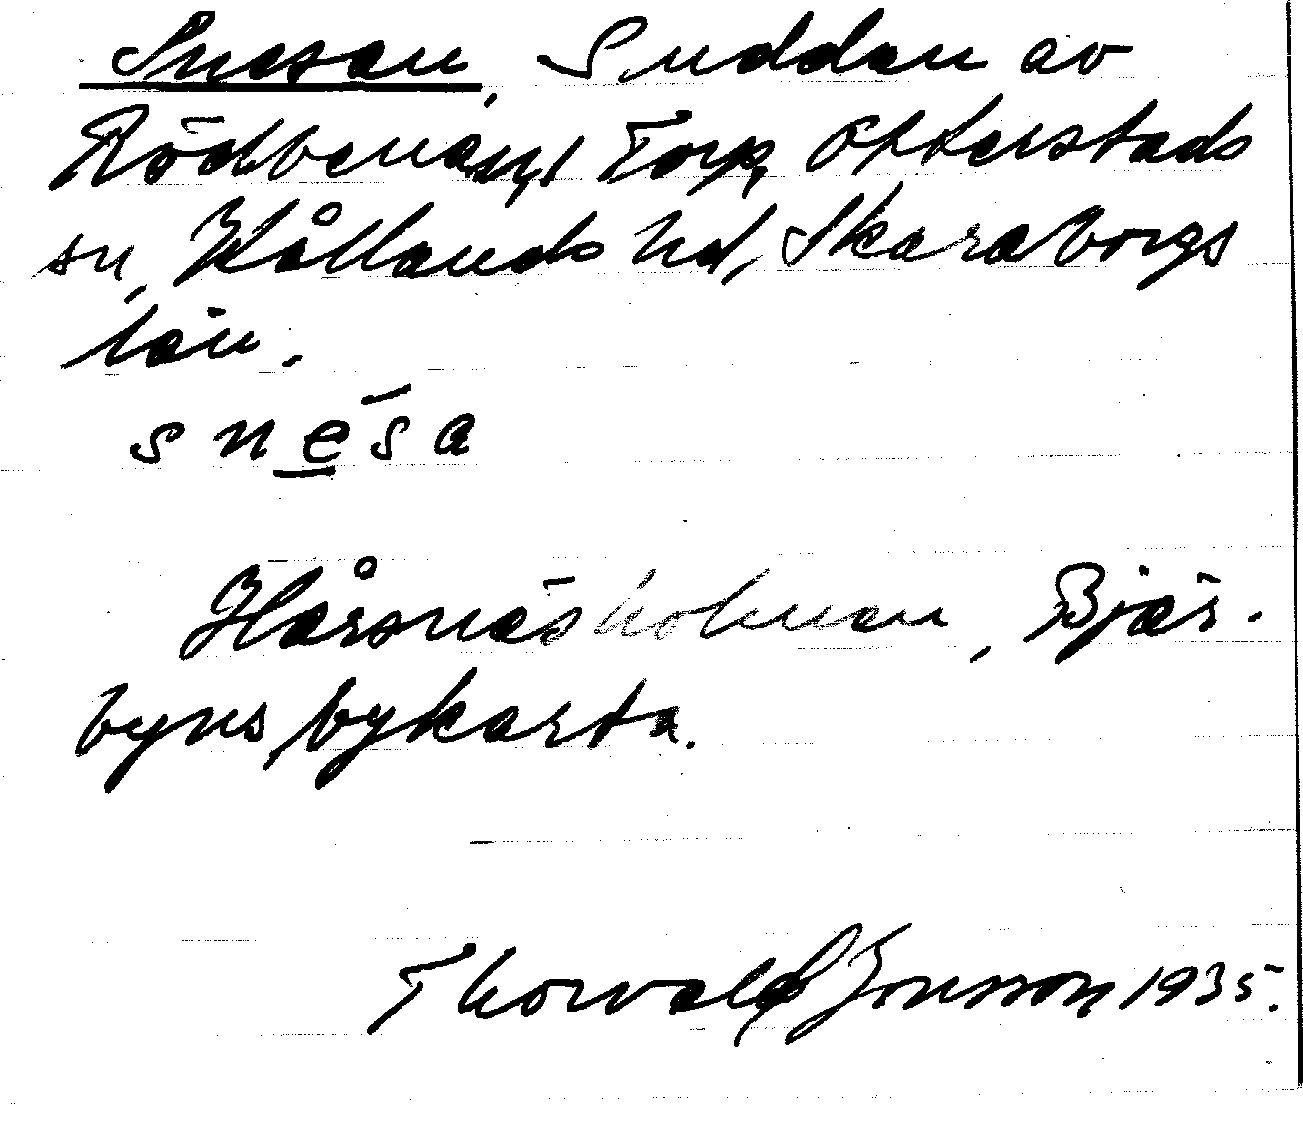 Snesan, Suddan av
Rödbena, Torp, Otterstads
sn, Kållands hd, Skaraborgs
län.
snésa
Hårsnäsholmen, Bjär-
byns bykarta.
Thorvald Jonsson 1935.